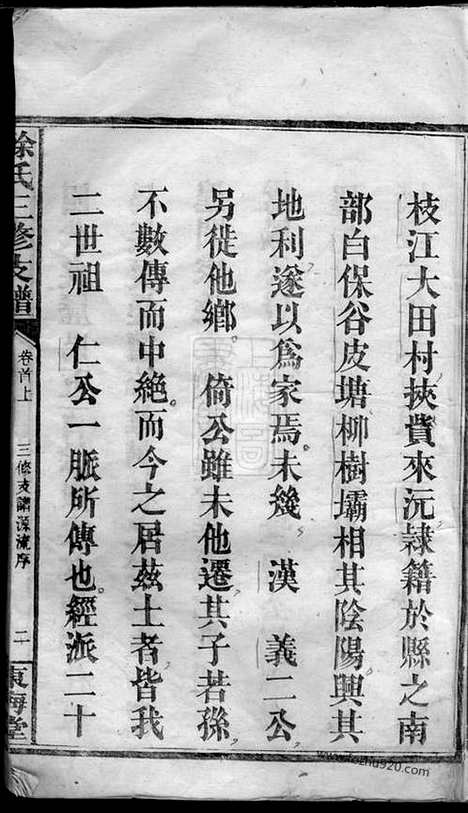 枝江大田村挾貲來沅隸籍於縣之南
部白保谷皮塘柳樹壩相其陰陽興其
地利遂以爲家焉。未幾 漢 義二公
另徙他鄉。倚公雖未他遷其子若孫
不數傳而中絶。而今之居茲土者皆我
二世祖 仁公一脈所傳也。經派二十
徐氏三修支譜
卷首上
三修支譜源流序
二
東海堂
www.fozhu920.com